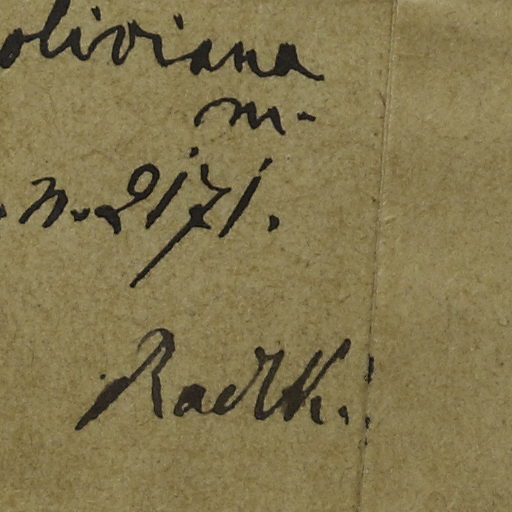 oliviana
m.
. n. 2171.
Radlk.